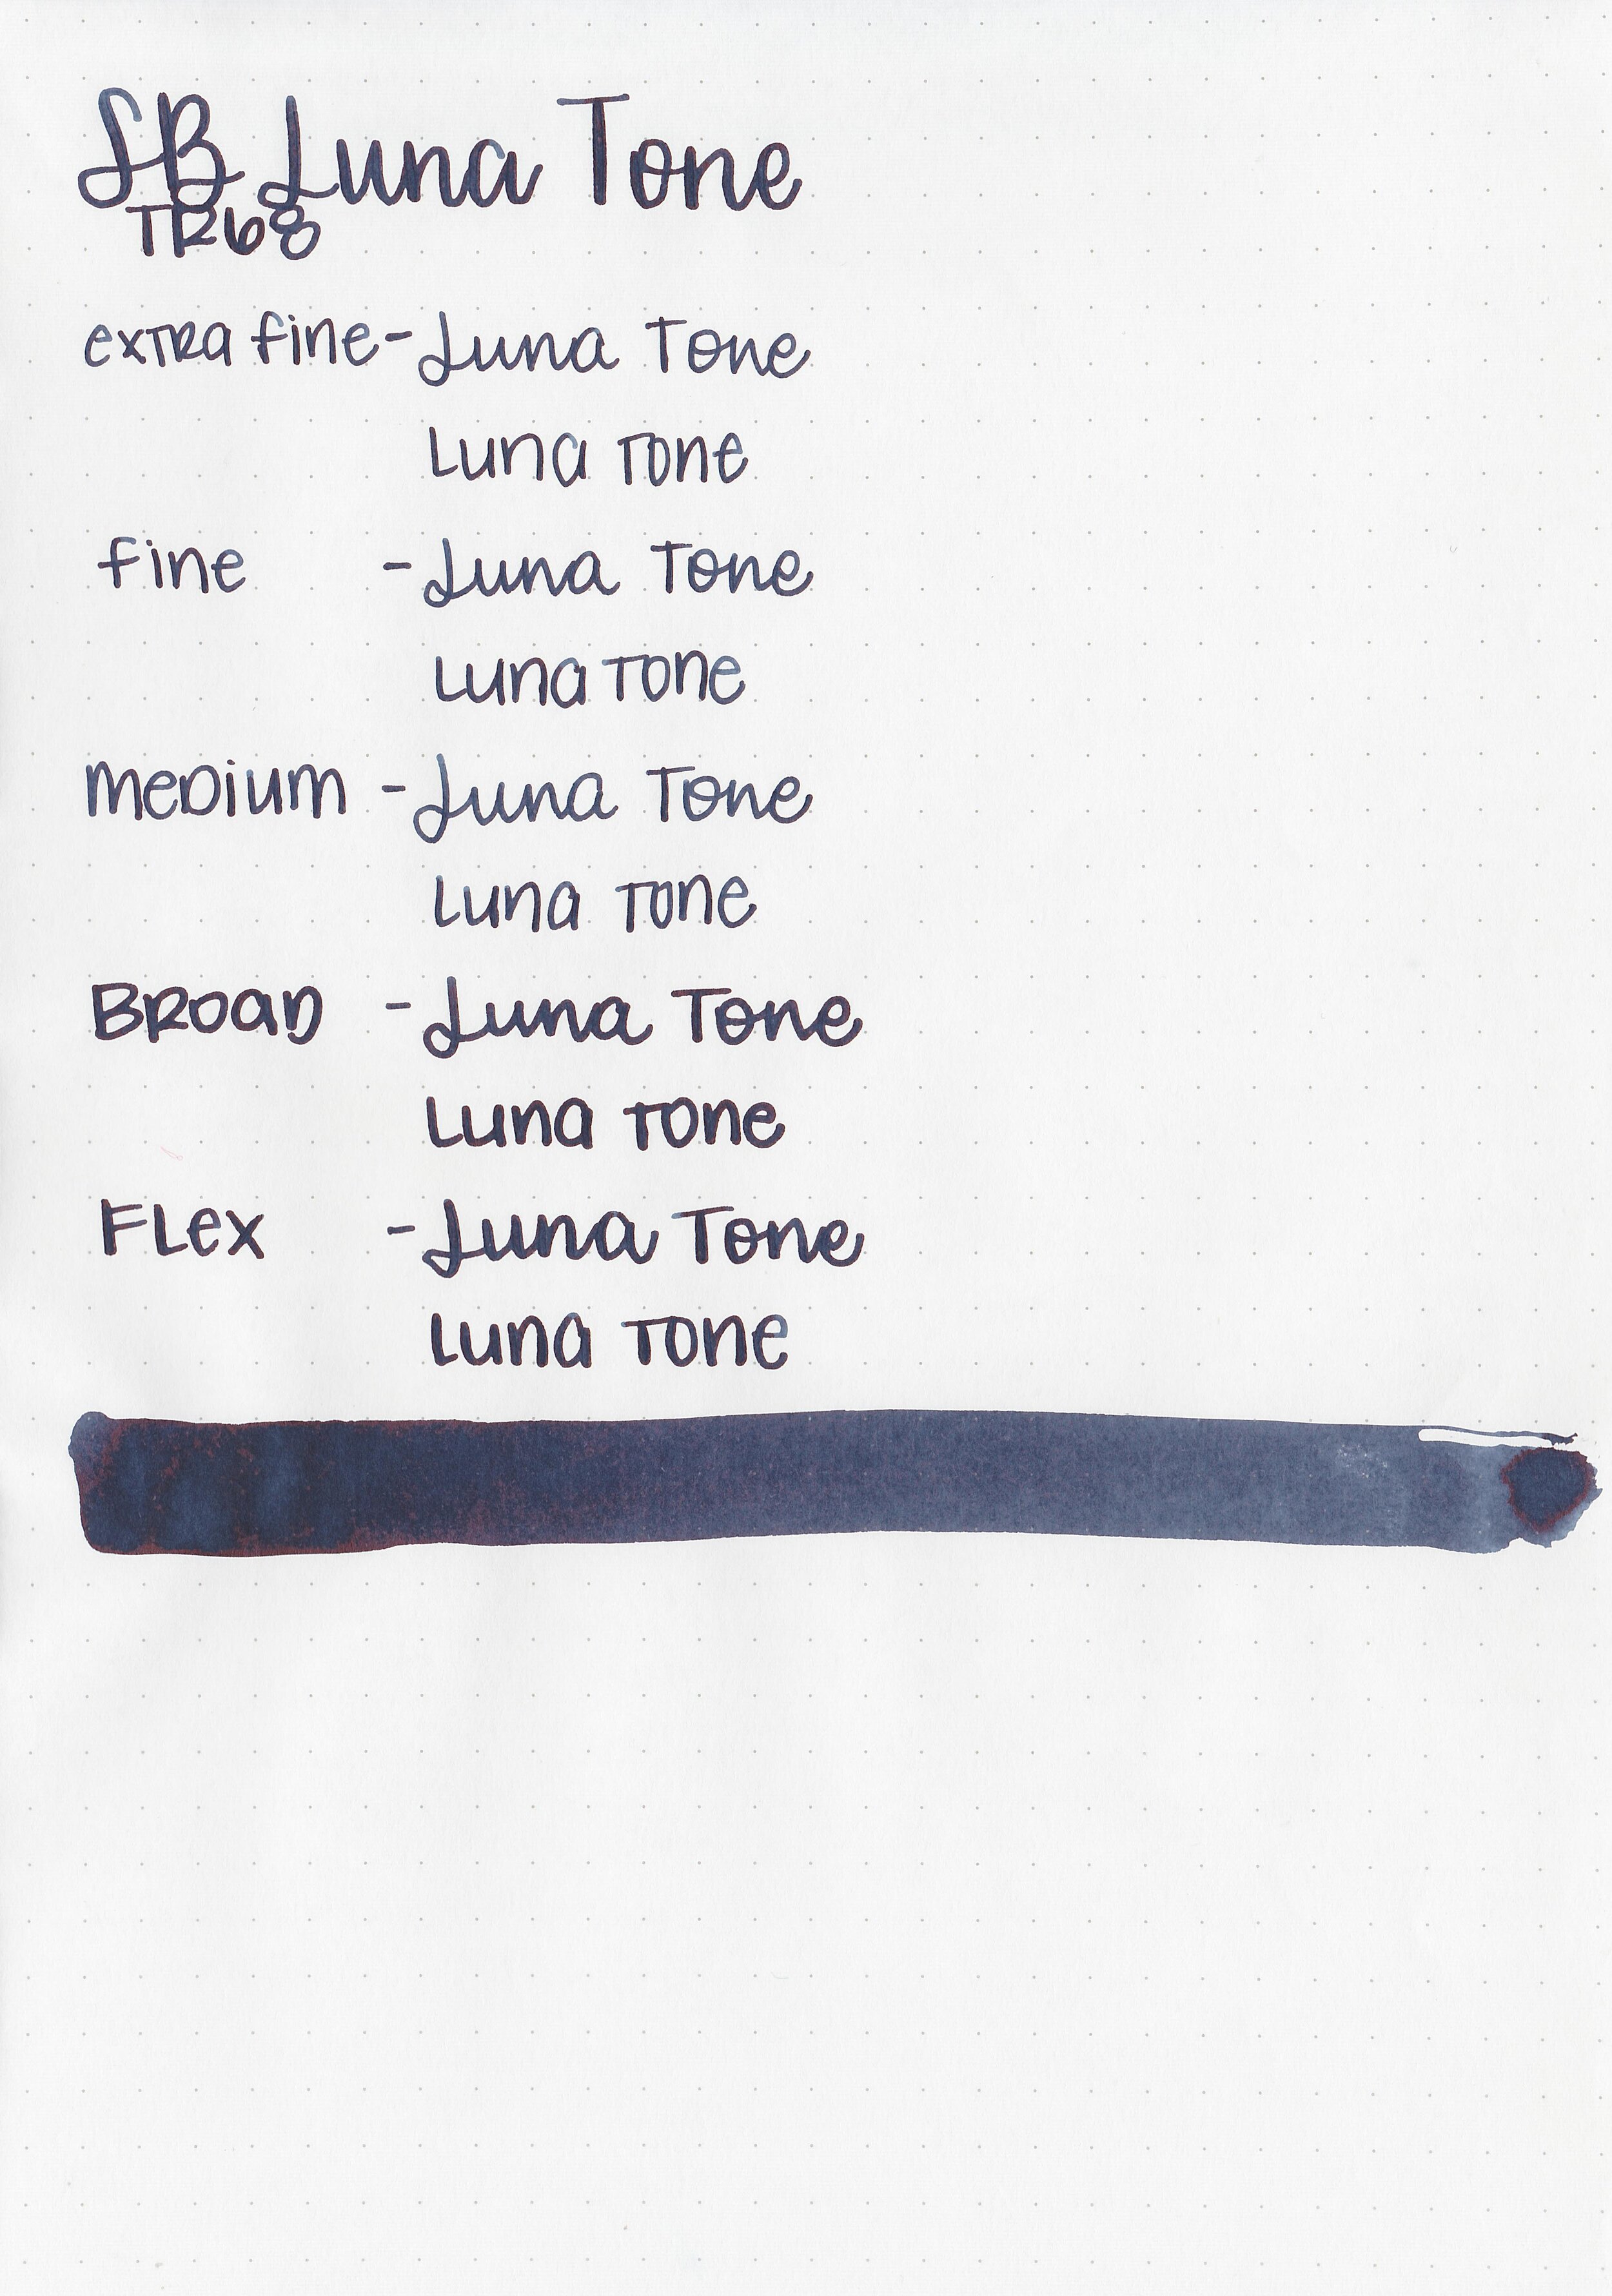 SB Luna Tone
TR68
extra fine - Luna Tone
Luna Tone
fine - Luna Tone
Luna Tone
medium - Luna Tone
Luna Tone
Broad - Luna Tone
Luna Tone
Flex - Luna Tone
Luna Tone